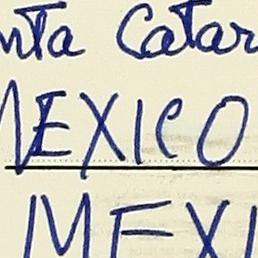 nta Catar
MEXICO
MEXI